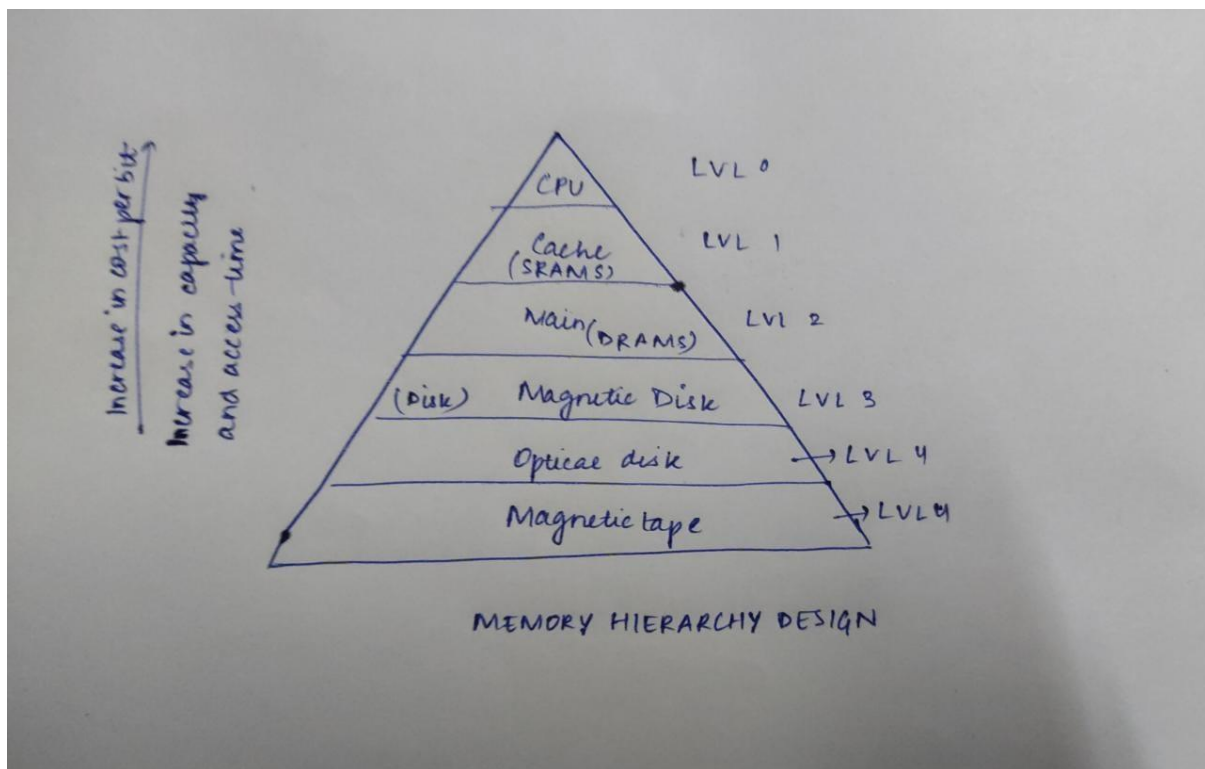 Increase in cost per bit
Increase in capacity
and access-time
CPU
LVL 0
Cache
(SRAMS)
LVL 1
Main (DRAMS)
LVL 2
(Disk) Magnetic Disk
LVL 3
Optical disk
LVL 4
Magnetic tape
LVL 4
MEMORY HIERARCHY DESIGN